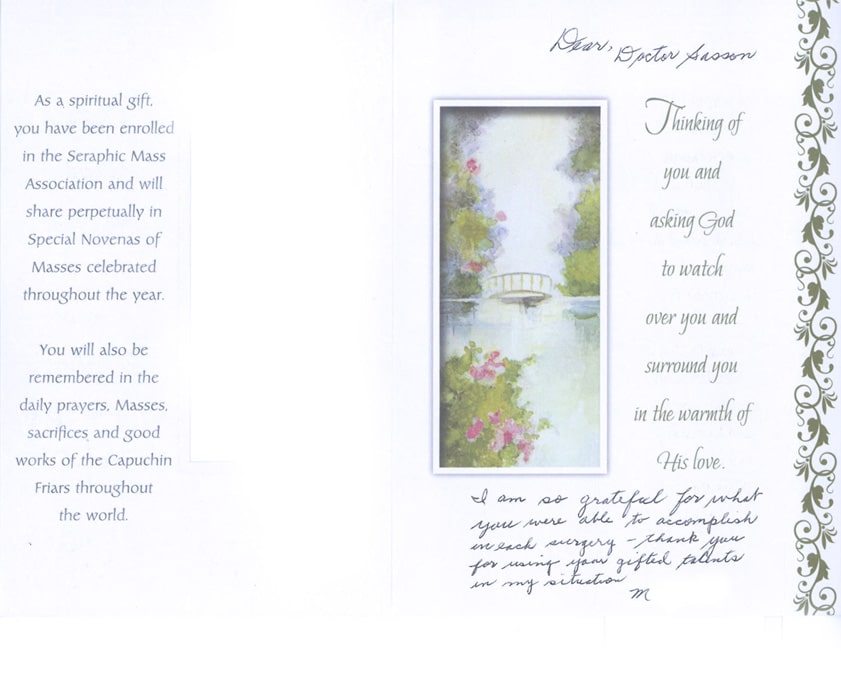 As a spiritual gift,
you have been enrolled
in the Seraphic Mass
Association and will
share perpetually in
Special Novenas of
Masses celebrated
throughout the year.
You will also be
remembered in the
daily prayers, Masses,
sacrifices and good
works of the Capuchin
Friars throughout
the world.
Dear, Doctor Sasson
Thinking of
you and
asking God
to watch
over you and
surround you
in the warmth of
His love.
I am so grateful for what
you were able to accomplish
in each surgery – thank you
for using your gifted talents
in my situation
M